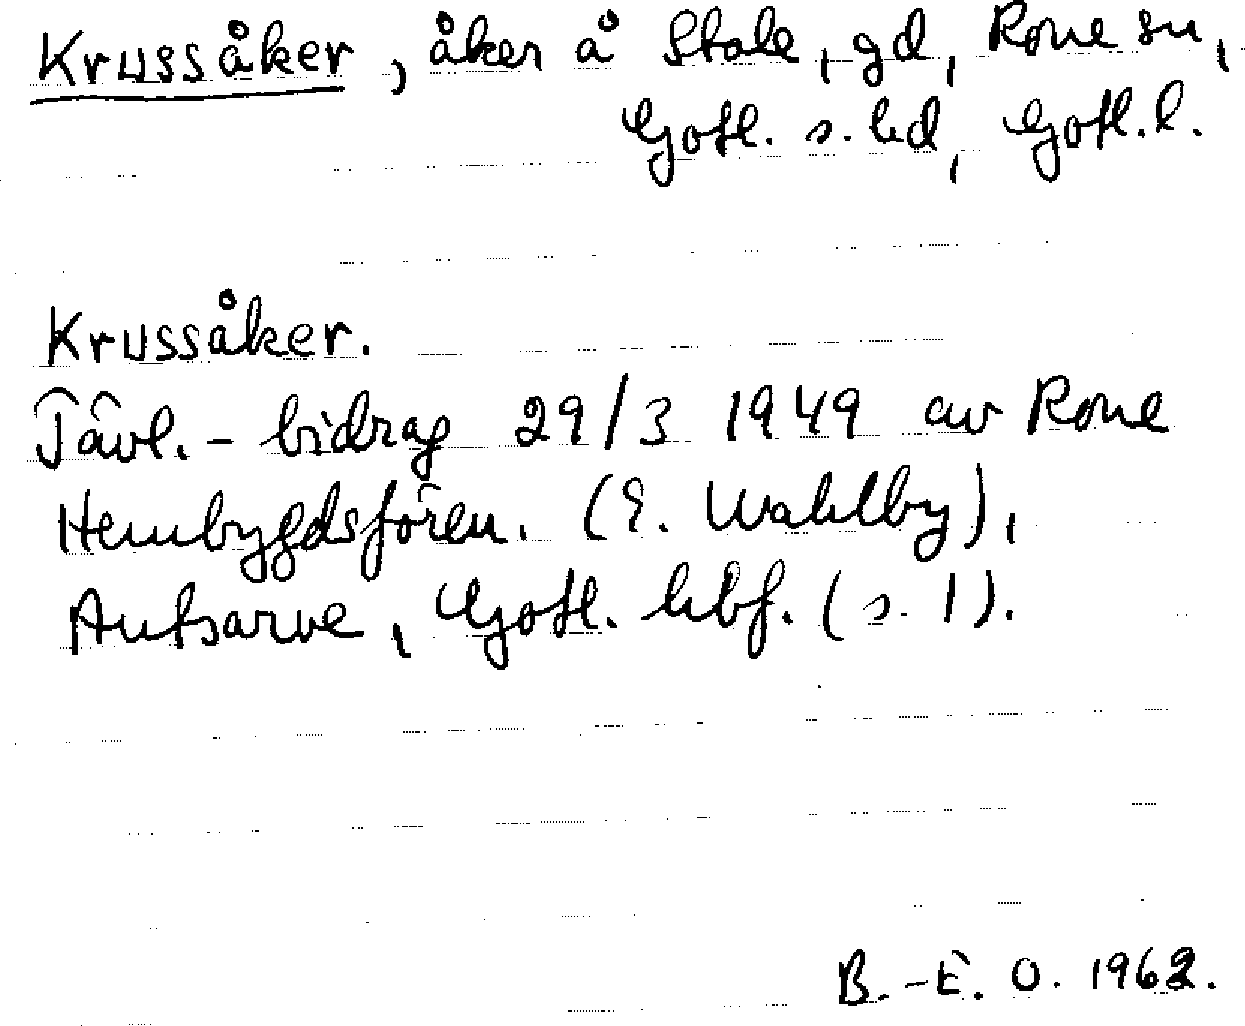 Krussåker, åker å Stale, gd, Rone sn,
Gotl. s. hd, Gotl. l.
Krussåker.
Tävl.-bidrag 29/3 1949 av Rone
Hembygdsfören. (E. Wahlby),
Autsarve, Gotl. hbf. (s. 1).
B.-E. O. 1962.